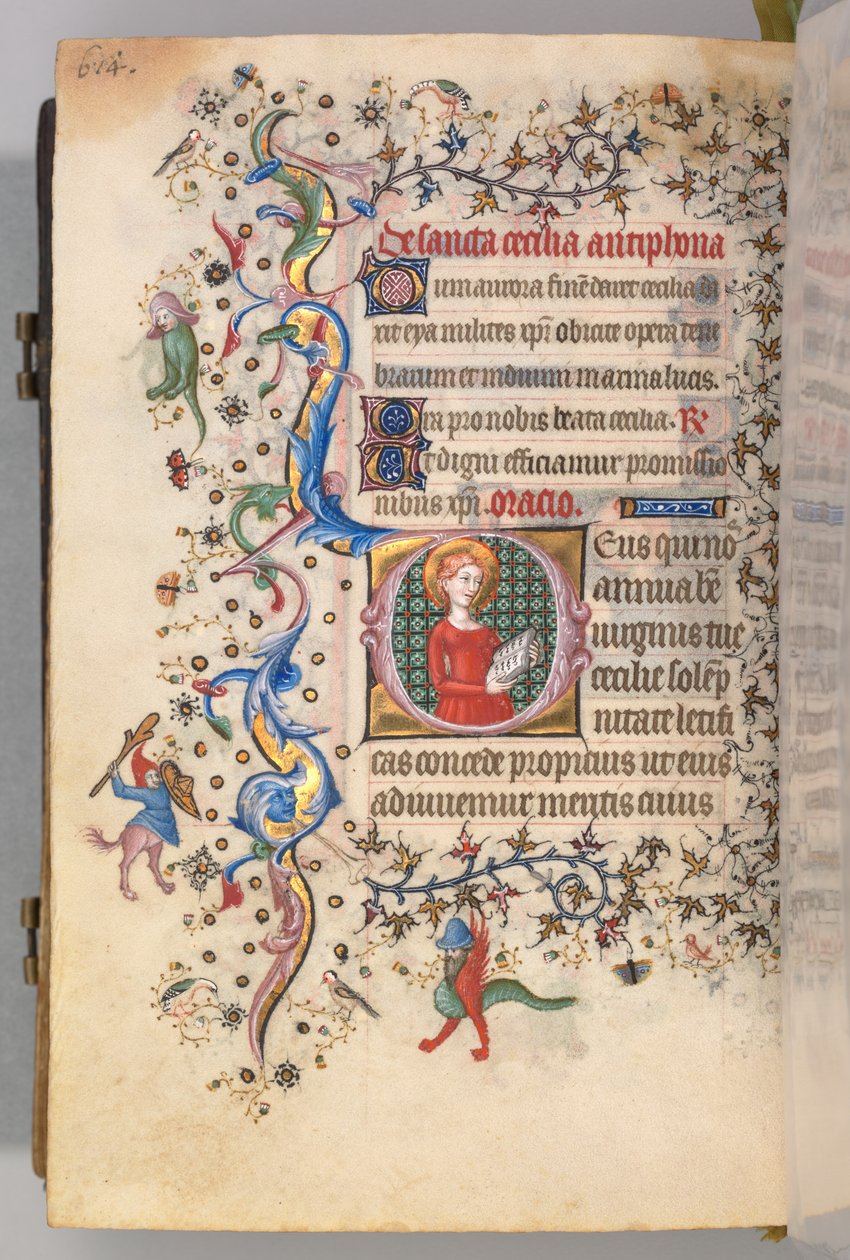 614.
De sancta cecilia antiphona
Dum aurora finē daret cecilia di
xit eya milites xp̄i obicite opera tene
brarum et induimini arma lucis.
Ora pro nobis beata cecilia. R
Ut digni efficiamur promissio
nibus xp̄i. oracio.
Deus qui nos
annua bē
uirginis tue
cecilie solēp
nitate letifi
cas concede propicius ut eius
adiuuemur meritis cuius